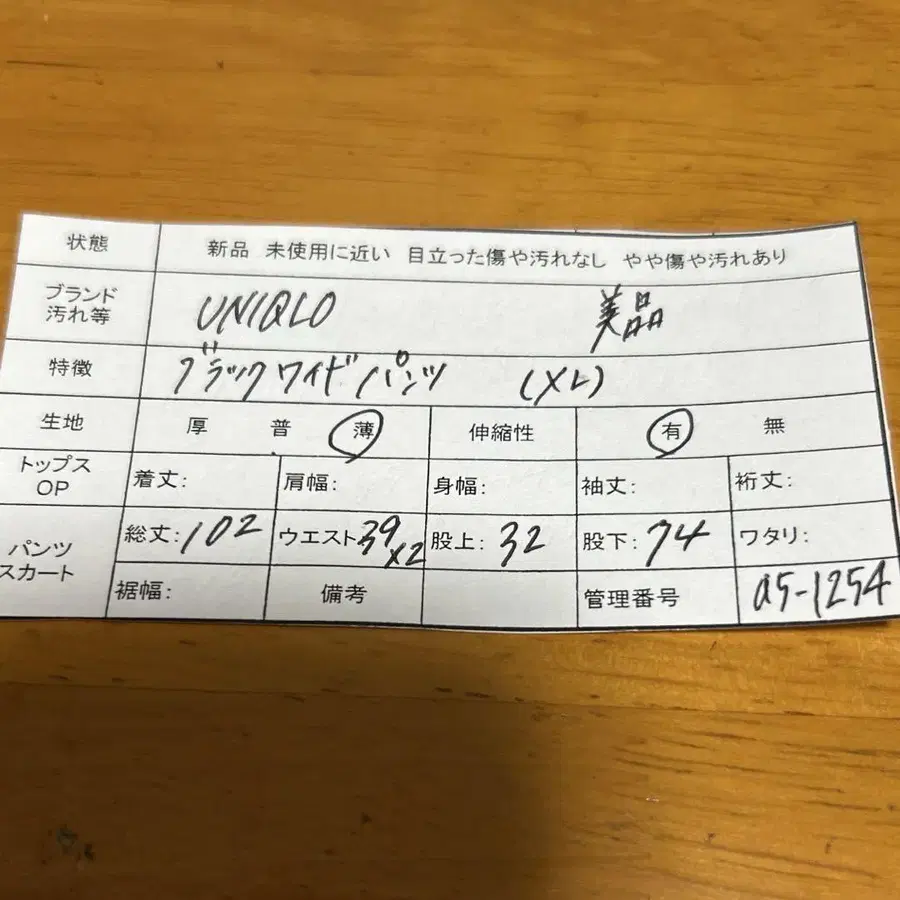 状態 新品 未使用に近い 目立った傷や汚れなし やや傷や汚れあり
ブランド
汚れ等 UNIQLO 美品
特徴 ブラックワイドパンツ (XL)
生地 厚 普 薄 伸縮性 有 無
トップス
OP 着丈: 肩幅: 身幅: 袖丈: 裄丈:
パンツ
スカート 総丈:102 ウエスト39x2 股上:32 股下:74 ワタリ:
裾幅: 備考 管理番号 a5-1254